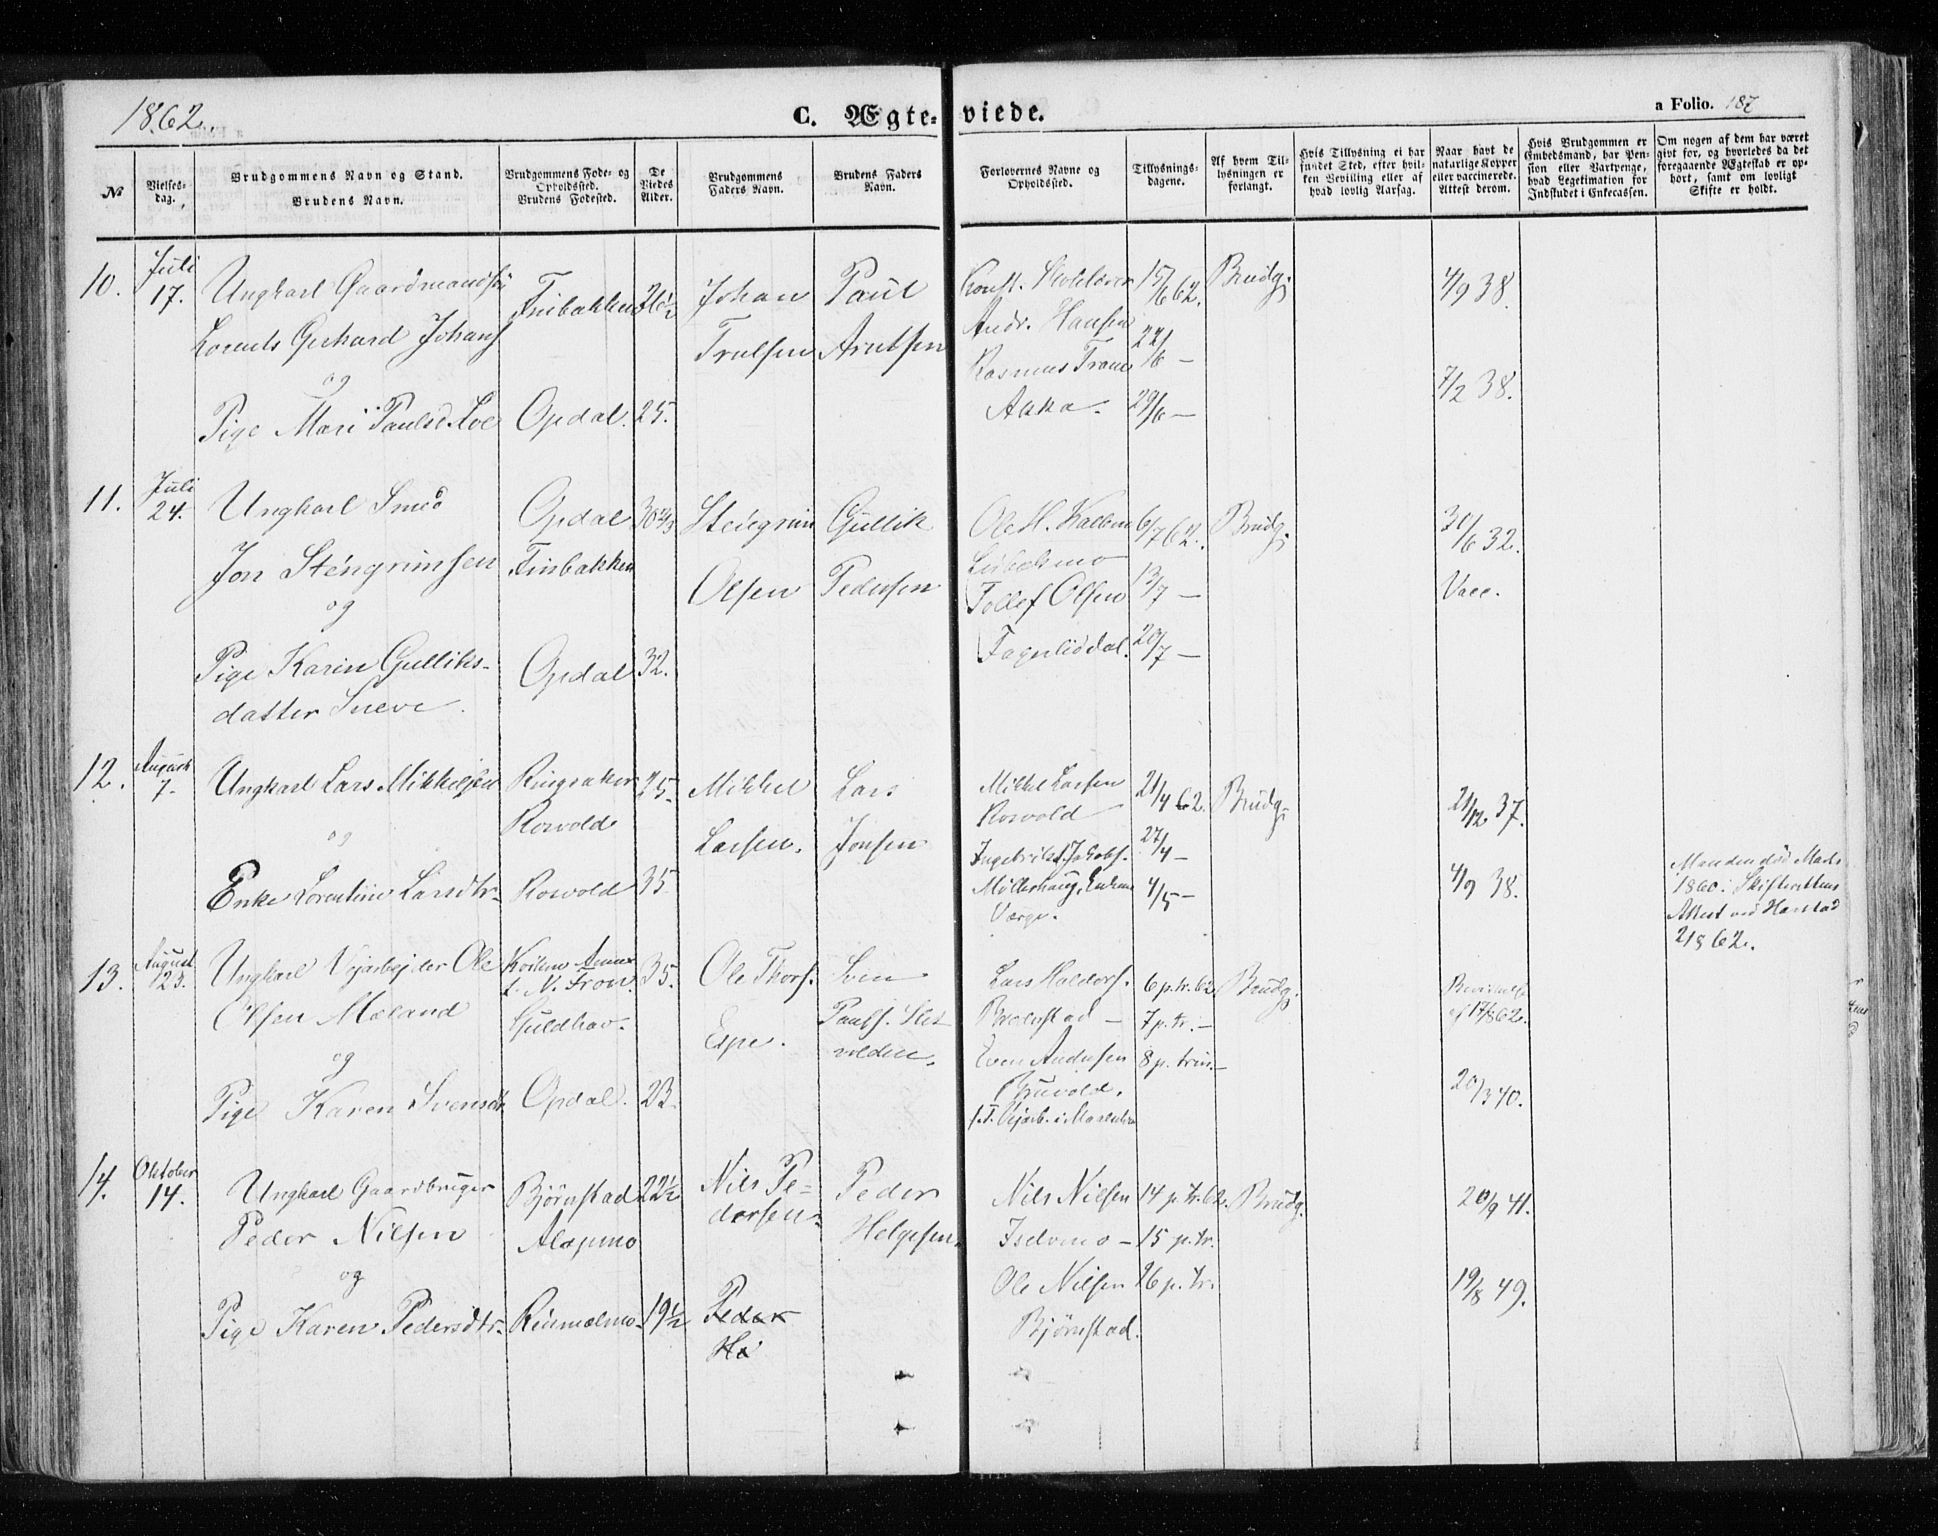 1862.
C. Ægte-viede.
a Folio. 187
No
Vielses-
dag.
Brudgommens Navn og Stand.
Brudens Navn.
Brudgommens Føde- og
Opholdssted.
Brudens Fødested.
De
Viedes
Alder.
Brudgommens
Faders Navn.
Brudens Faders
Navn.
Forlovernes Navne og
Opholdssted.
Tillysnings-
dagene.
Af hvem Til-
lysningen er
forlangt.
Hvis Tillysning ei har
fundet Sted, efter hvil-
ken Bevilling eller af
hvad lovlig Aarsag.
Naar havt de
naturlige Kopper
eller vaccinerede.
Attest derom.
Hvis Brudgommen er
Embedsmand, har Pen-
sion eller Vartpenge,
hvad Legitimation for
Indskudet i Enkecassen.
Om nogen af dem har været
givt før, og hvorledes da det
foregaaende Ægteskab er op-
hørt, samt om lovligt
Skifte er holdt.
10.
Juli
17.
Ungkarl Gaardmandsøn
Lorents Gerhard Johans
og
Pige Mari Paulsd. Loe
Finbakken
Opdal.
26½
25.
Johan
Trulsen
Paul
Arntsen
Konst. Skolelærer
Andr. Hansen
Rasmus Trane
Aaka.
15/6 62.
22/6 —
29/6 —
Brudg.
4/9 38.
7/2 38.
11.
Juli
24.
Ungkarl Smed
Jon Stengrimsen
og
Pige Karin Gulliks-
datter Sneve.
Opdal
Finbakken
Opdal
30 2/3
32.
Steengrim
Olsen
Gullik
Pedersen
Ole H.
Tollef Olsen
Fagerliddal.
6/7 62.
13/7 —
20/7 —
Brudg.
30/6 32.
Vacc.
12.
August
7.
Ungkarl Lars Mikkelsen
og
Enke Lorentine Larsdtr.
Ringsaker
Rosvold
Rosvold
25.
35
Mikkel
Larsen.
Lars
Jonsen
Mikkel Larsen
Rosvold
Ingebrikt Jakobs.
Møllerhaug, Enkens
Værge.
21/4 62.
27/4 —
4/5 —
Brudg.
21/12 37.
4/9 38.
Manden død Marts
1860. Skifterettens
Attest ved Harstad
2/8 62.
13.
August
23.
Ungkarl Vejarbejder Ole
Olsen Mæland
og
Pige Karen Svensdtr
N. Fron.
Guldhav.
Opdal.
35.
23.
Ole Thors.
Espe.
Sven
Pauls. Slet-
volden.
Lars Haldors.
—
Even Andersen
Gruvold.
6 p. tr. 62
7 p. tr. —
8 p. trin. —
Brudg.
af 17/8 62.
20/3 40.
14.
Oktober
14.
Ungkarl Gaardbruger
Peder Nilsen
og
Pige Karen Pedersdtr.
Bjørnstad
Alægmo
Rinmælmo
22½
19½
Nils Pe-
dersen
Peder
He
Peder
Helgesen.
Nils Nilsen
Iselvmo —
Ole Nilsen
Bjørnstad.
14 p. tr. 62.
15 p. tr.
16 p. tr.
Brudg.
20/9 41.
19/8 49.